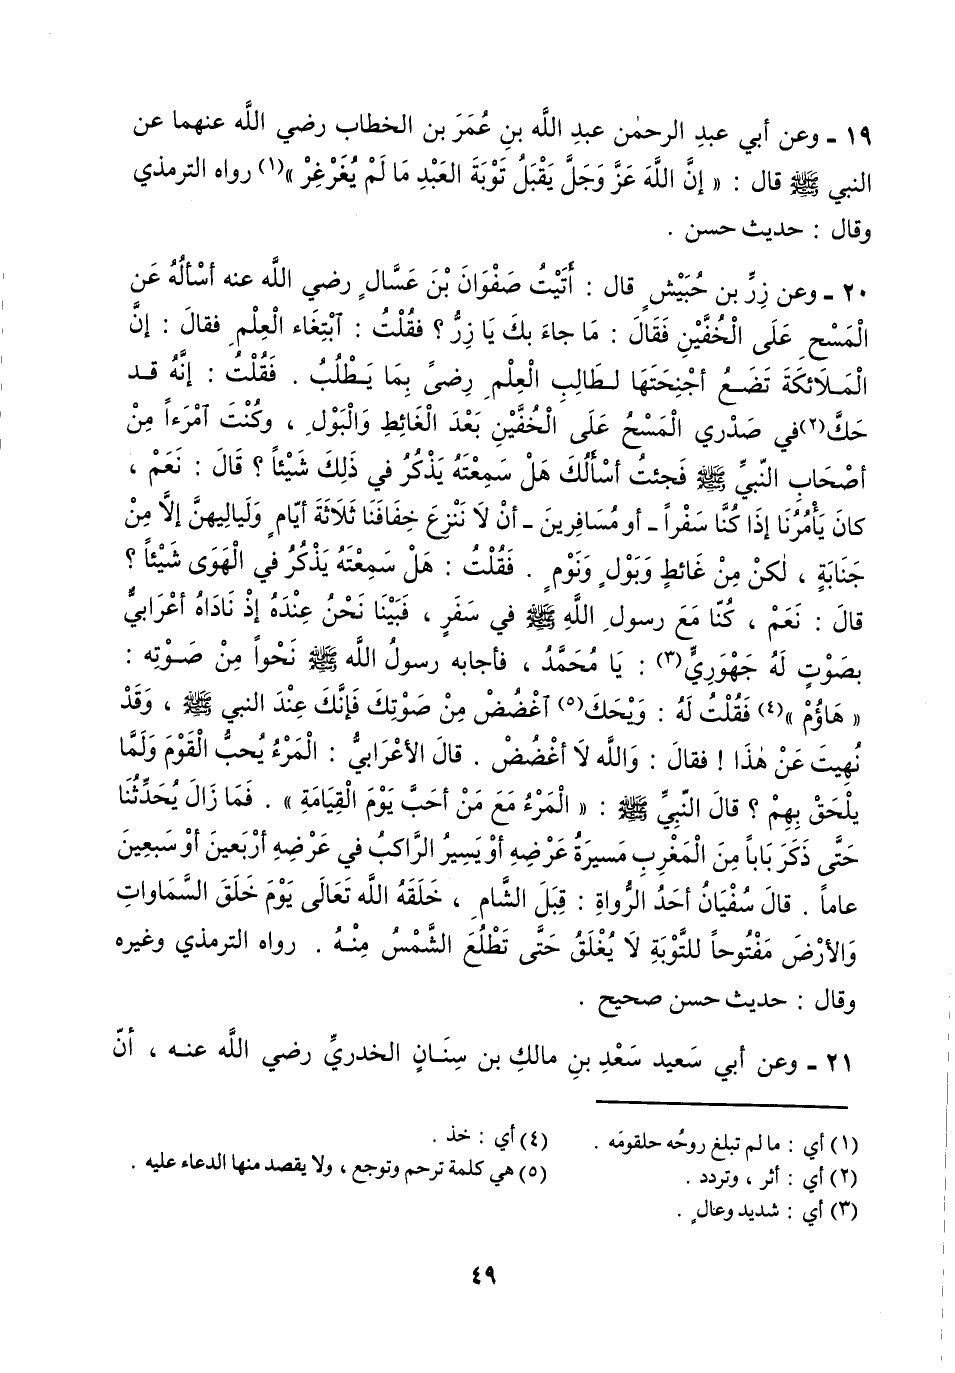 ١٩ ـ وعن أبي عبدِ الرحمٰن عبدِ اللَّه بنِ عُمَرَ بن الخطاب رضي اللَّه عنهما عن
النبي ﷺ قال : « إنَّ اللَّهَ عَزَّ وَجَلَّ يَقْبَلُ تَوْبَةَ العَبْدِ مَا لَمْ يُغَرْغِرْ »(١) رواه الترمذي
وقال : حديث حسن .
٢٠ ـ وعن زِرِّ بن حُبَيْشٍ قال : أَتَيْتُ صَفْوَانَ بْنَ عَسَّالٍ رضي اللَّه عنه أسْألُهُ عَن
الْمَسْحِ عَلَى الْخُفَّيْنِ فَقَالَ : مَا جاءَ بكَ يَا زِرُّ ؟ فقُلْتُ : ٱبْتِغَاء العِلْمِ فقالَ : إنَّ
الْمَلائكَةَ تَضَعُ أجْنِحَتَهَا لطَالِبِ الْعِلْمِ رِضىً بمَا يَطْلُبُ . فَقُلْتُ : إنَّهُ قد
حَكَّ(٢) في صَدْري الْمَسْحُ عَلَى الْخُفَّيْنِ بَعْدَ الْغَائطِ وَالْبَوْلِ ، وكُنْتَ ٱمْرَءاً مِنْ
أصْحَابِ النَّبيِّ ﷺ فَجئتُ أسْأَلُكَ هَلْ سَمِعْتَهُ يَذْكُرُ في ذَلِكَ شَيْئاً ؟ قَالَ : نَعَمْ ،
كانَ يَأْمُرُنَا إذَا كُنَّا سَفْراً ـ أو مُسَافِرينَ ـ أنْ لَا نَنْزِعَ خِفَافَنَا ثَلاثَةَ أيَّامٍ وَلَيالِيهنَّ إلاَّ مِنْ
جَنَابَةٍ ، لكنْ مِنْ غَائطٍ وَبَوْلٍ وَنَوْمٍ . فَقُلْتُ : هَلْ سَمِعْتَهُ يَذْكُرُ في الْهَوَى شَيْئاً ؟
قالَ : نَعَمْ ، كُنّا مَعَ رسولِ اللَّهِ ﷺ في سَفَرٍ ، فَبَيْنَا نَحْنُ عِنْدَهُ إذْ نَادَاهُ أعْرَابيٌّ
بصَوْتٍ لَهُ جَهْوَرِيٍّ(٣) : يَا مُحَمَّدُ ، فأجابه رسولُ اللَّه ﷺ نَحْواً مِنْ صَوْتِه :
« هَاؤُمْ »(٤) فَقُلْتُ لَهُ : وَيْحَكَ(٥) ٱغْضُضْ مِنْ صَوْتِكَ فَإنَّكَ عِنْدَ النبي ﷺ ، وَقَدْ
نُهِيتَ عَنْ هٰذَا ! فقالَ : وَاللَّه لَا أغْضُضْ . قالَ الأعْرَابيُّ : الْمَرْءُ يُحبُّ الْقَوْمَ وَلَمَّا
يلْحَقْ بِهِمْ ؟ قالَ النَّبِيِّ ﷺ : « الْمَرْءُ مَعَ مَنْ أحَبَّ يَوْمَ الْقِيَامَةِ » . فَمَا زَالَ يُحَدِّثُنَا
حَتَّى ذَكَرَ بَاباً مِنَ الْمَغْرِبِ مَسيرَةُ عَرْضِهِ أوْ يَسِيرُ الرَّاكبُ في عَرْضِهِ أرْبَعينَ أوْ سَبعِينَ
عاماً . قالَ سُفْيَانُ أحَدُ الرُّواةِ : قِبَلَ الشَّامِ ، خَلَقَهُ اللَّه تَعَالَى يَوْمَ خَلَقَ السَّمَاواتِ
وَالأرْضَ مَفْتُوحاً للتَّوْبَةِ لَا يُغْلَقُ حَتَّى تَطْلُعَ الشَّمْسُ مِنْهُ . رواه الترمذي وغيره
وقال : حديث حسن صحيح .
٢١ ـ وعن أبي سَعيد سَعْدِ بنِ مالكِ بن سِنَانٍ الخدريِّ رضي اللَّه عنه ، أنّ
(١) أي : ما لم تبلغ روحُه حلقومَه .
(٢) أي : أثر ، وتردد .
(٣) أي : شديد وعالٍ .
(٤) أي : خذ .
(٥) هي كلمة ترحم وتوجع ، ولا يقصد منها الدعاء عليه .
٤٩